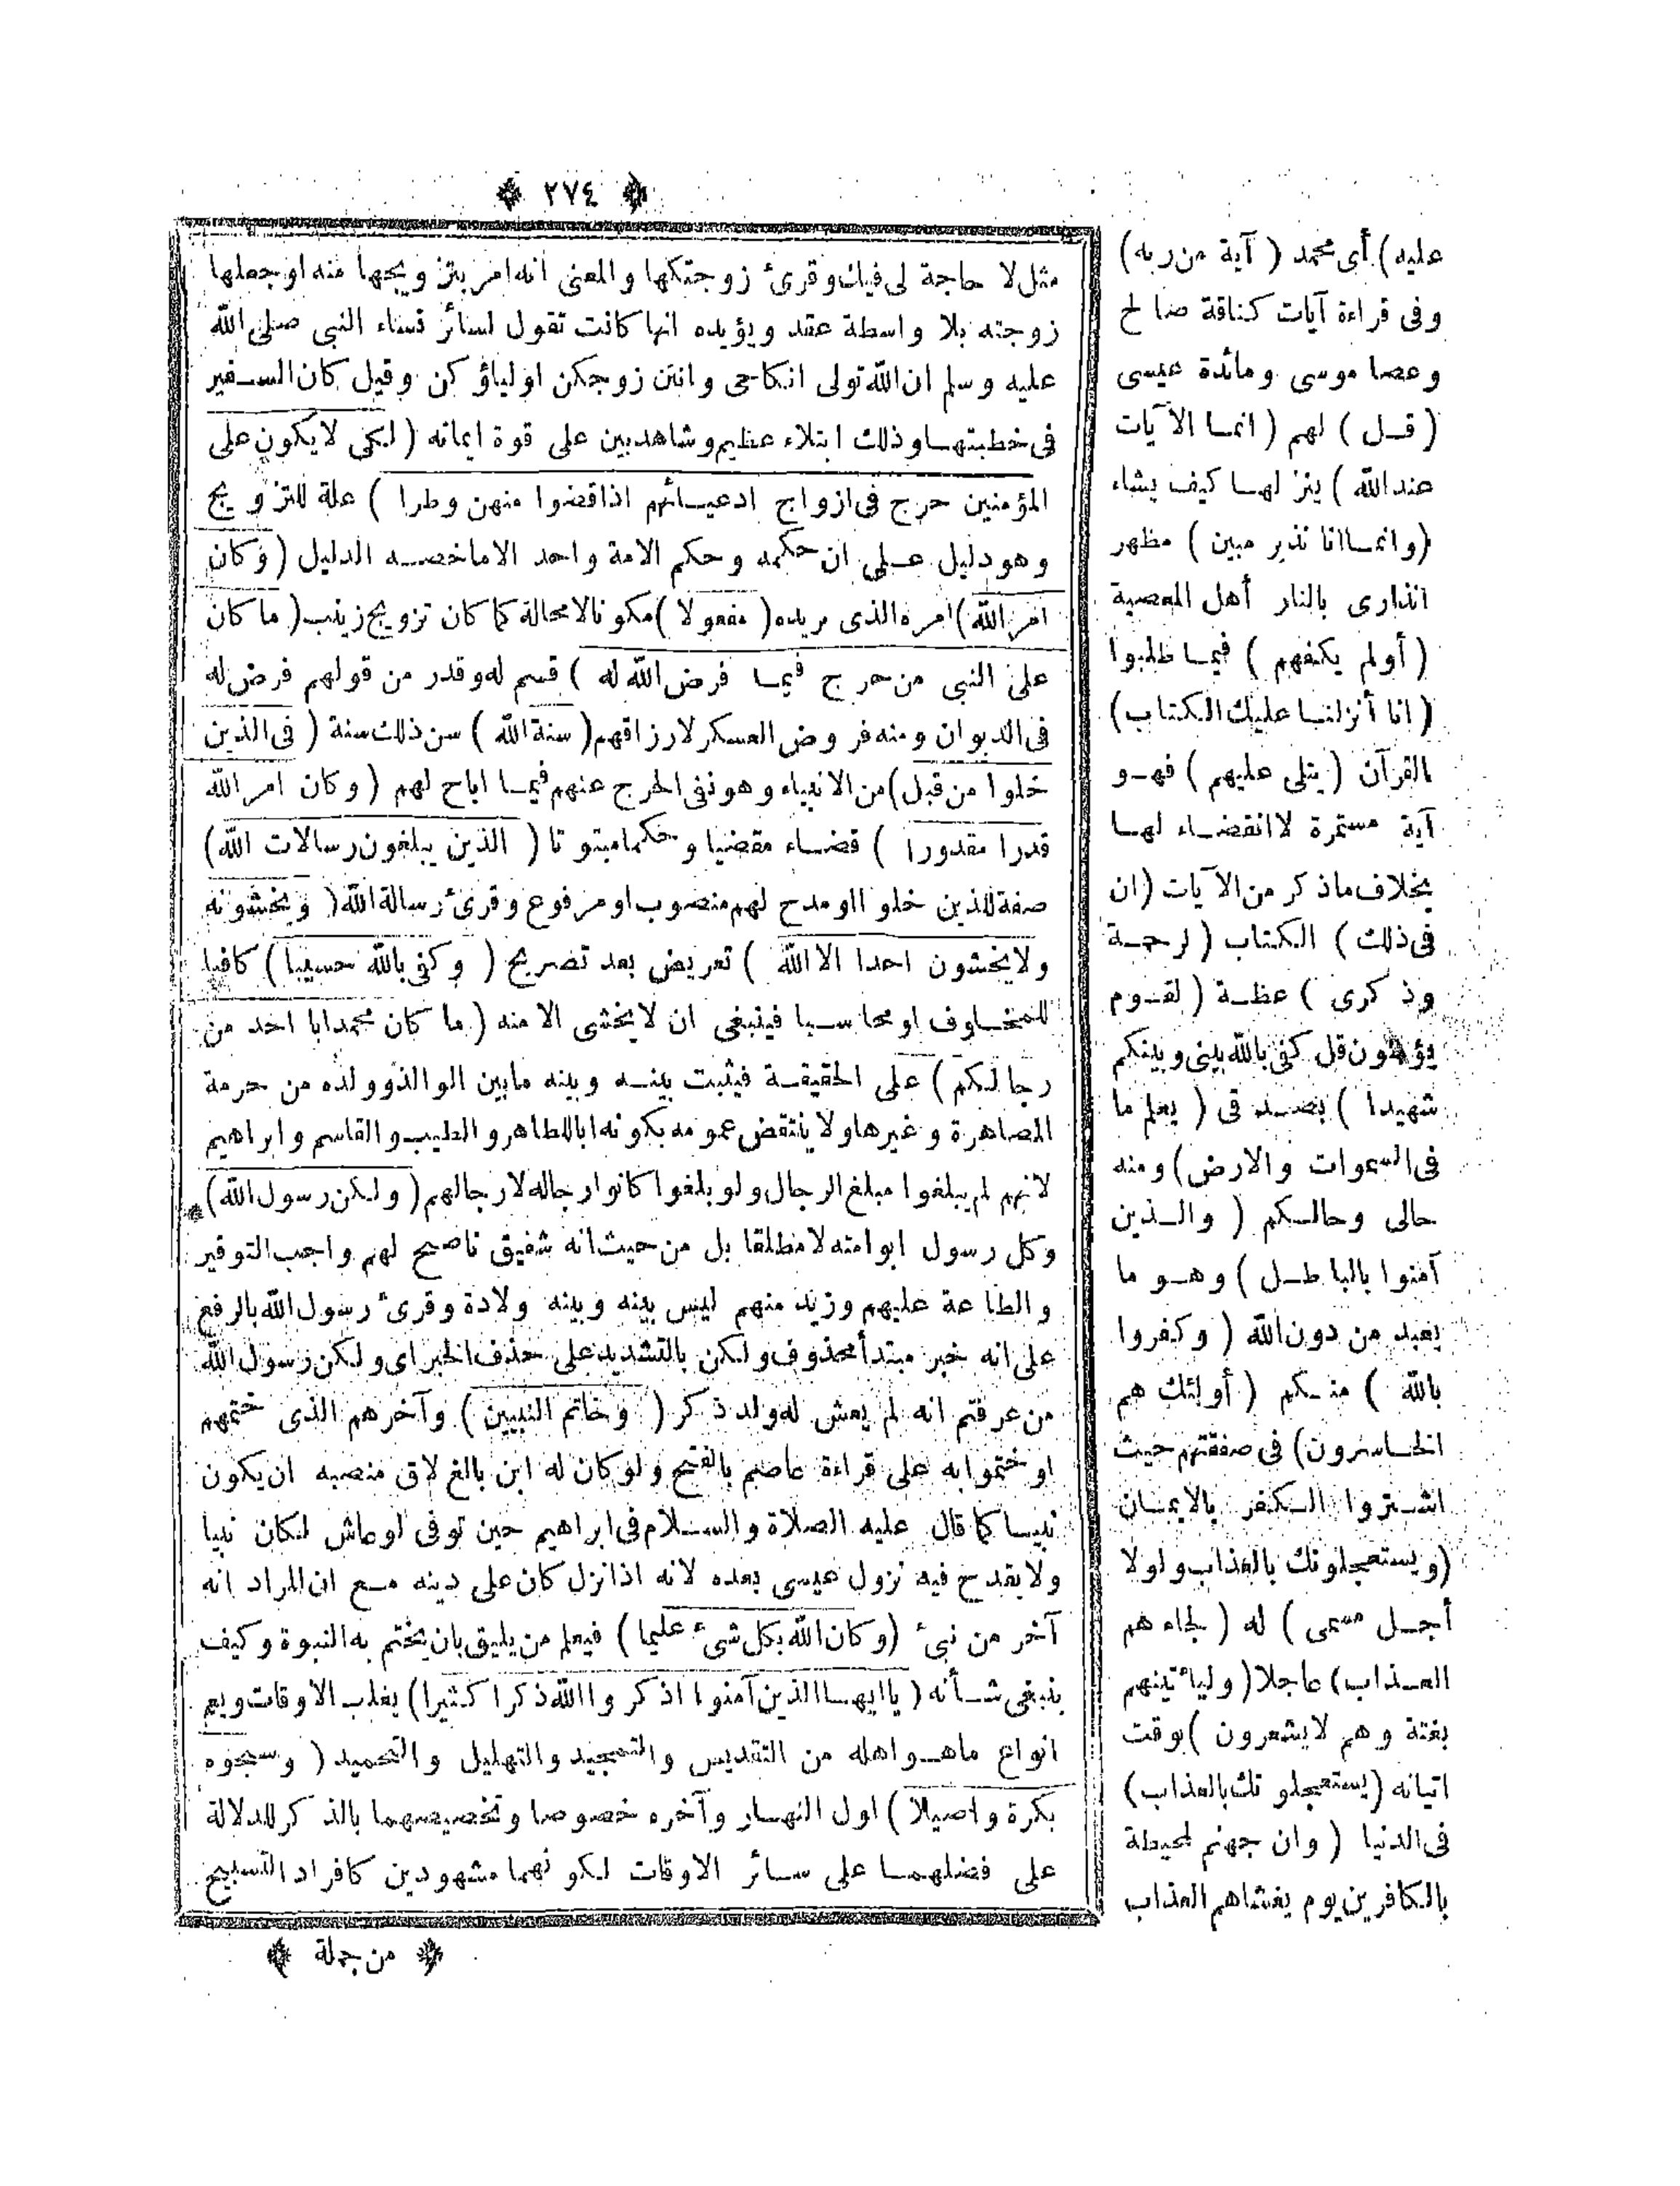 ٢٧٤
مثل لا حاجة لى فيك وقرئ زوجتكها والمعنى انه امر بتزويجها منه او جعلها
زوجته بلا واسطة عقد ويؤيده انها كانت تقول لسائر نساء النبى صلى الله
عليه وسلم ان الله تولى انكاحى وانتن زوجكن اولياؤكن وقيل كان السفير
فى خطبتها وذلك ابتلاء عظيم وشاهد بين على قوة ايمانه ( لكى لا يكون على
المؤمنين حرج فى ازواج ادعيائهم اذا قضوا منهن وطرا ) علة للتزويج
وهو دليل على ان حكمه وحكم الامة واحد الا ما خصه الدليل ( وكان
امر الله ) امره الذى يريده ( مفعولا ) مكونا لا محالة كما كان تزويج زينب ( ما كان
على النبى من حرج فيما فرض الله له ) قسم له وقدر من قولهم فرض له
فى الديوان ومنه فروض العسكر لارزاقهم ( سنة الله ) سن ذلك سنة ( فى الذين
خلوا من قبل ) من الانبياء وهو نفى الحرج عنهم فيما اباح لهم ( وكان امر الله
قدرا مقدورا ) قضاء مقضيا وحكما مبتوتا ( الذين يبلغون رسالات الله )
صفة للذين خلوا او مدح لهم منصوب او مرفوع وقرئ رسالة الله ( ويخشونه
ولا يخشون احدا الا الله ) تعريض بعد تصريح ( وكفى بالله حسيبا ) كافيا
للمخاوف او محاسبا فينبغى ان لا يخشى الا منه ( ما كان محمد ابا احد من
رجالكم ) على الحقيقة فيثبت بينه وبينه ما بين الوالد وولده من حرمة
المصاهرة وغيرها ولا ينتقض عمومه بكونه ابا للطاهر والطيب والقاسم وابراهيم
لانهم لم يبلغوا مبلغ الرجال ولو بلغوا كانوا رجاله لا رجالهم ( ولكن رسول الله )
وكل رسول ابو امته لا مطلقا بل من حيث انه شفيق ناصح لهم واجب التوقير
والطاعة عليهم وزيد منهم ليس بينه وبينه ولادة وقرئ رسول الله بالرفع
على انه خبر مبتدأ محذوف ولكن بالتشديد على حذف الخبر اى ولكن رسول الله
من عرفتم انه لم يعش له ولد ذكر ( وخاتم النبيين ) وآخرهم الذى ختمهم
او ختموا به على قراءة عاصم بالفتح ولو كان له ابن بالغ لاق منصبه ان يكون
نبيا كما قال عليه الصلاة والسلام فى ابراهيم حين توفى لو عاش لكان نبيا
ولا يقدح فيه نزول عيسى بعده لانه اذا نزل كان على دينه مع ان المراد انه
آخر من نبئ ( وكان الله بكل شئ عليما ) فيعلم من يليق بان يختم به النبوة وكيف
ينبغى شأنه ( يا ايها الذين آمنوا اذكروا الله ذكرا كثيرا ) يغلب الاوقات ويعم
انواع ما هو اهله من التقديس والتمجيد والتهليل والتحميد ( وسبحوه
بكرة واصيلا ) اول النهار وآخره خصوصا وتخصيصهما بالذكر للدلالة
على فضلهما على سائر الاوقات لكونهما مشهودين كافراد التسبيح
من جملة
عليه ) أى محمد ( آية من ربه )
وفى قراءة آيات كناقة صالح
وعصا موسى ومائدة عيسى
( قل ) لهم ( انما الآيات
عند الله ) ينزلها كيف يشاء
( وانما انا نذير مبين ) مظهر
انذارى بالنار أهل المعصية
( أولم يكفهم ) فيما طلبوا
( انا أنزلنا عليك الكتاب )
القرآن ( يتلى عليهم ) فهو
آية مستمرة لا انقضاء لها
بخلاف ما ذكر من الآيات ( ان
فى ذلك ) الكتاب ( لرحمة
وذكرى ) عظة ( لقوم
يؤمنون قل كفى بالله بينى وبينكم
شهيدا ) بصدقى ( يعلم ما
فى السموات والارض ) ومنه
حالى وحالكم ( والذين
آمنوا بالباطل ) وهو ما
يعبد من دون الله ( وكفروا
بالله ) منكم ( أولئك هم
الخاسرون ) فى صفقتهم حيث
اشتروا الكفر بالايمان
( ويستعجلونك بالعذاب ولولا
أجل مسمى ) له ( لجاءهم
العذاب ) عاجلا ( وليأتينهم
بغتة وهم لا يشعرون ) بوقت
اتيانه ( يستعجلونك بالعذاب )
فى الدنيا ( وان جهنم لمحيطة
بالكافرين يوم يغشاهم العذاب